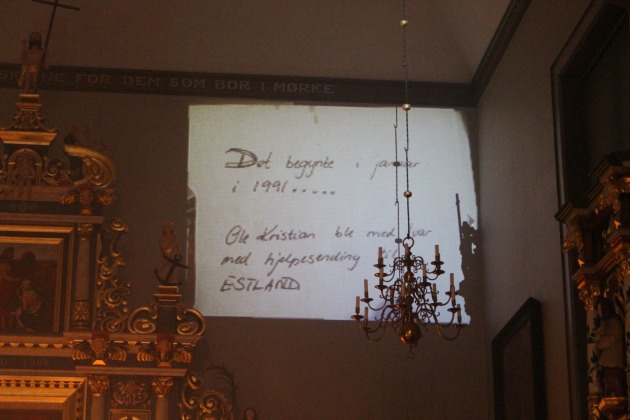 SKINNE FOR DEM SOM BOR I MØRKE
Det begynte i januar
i 1991.....
Ole Kristian ble med
med hjelpesending
ESTLAND